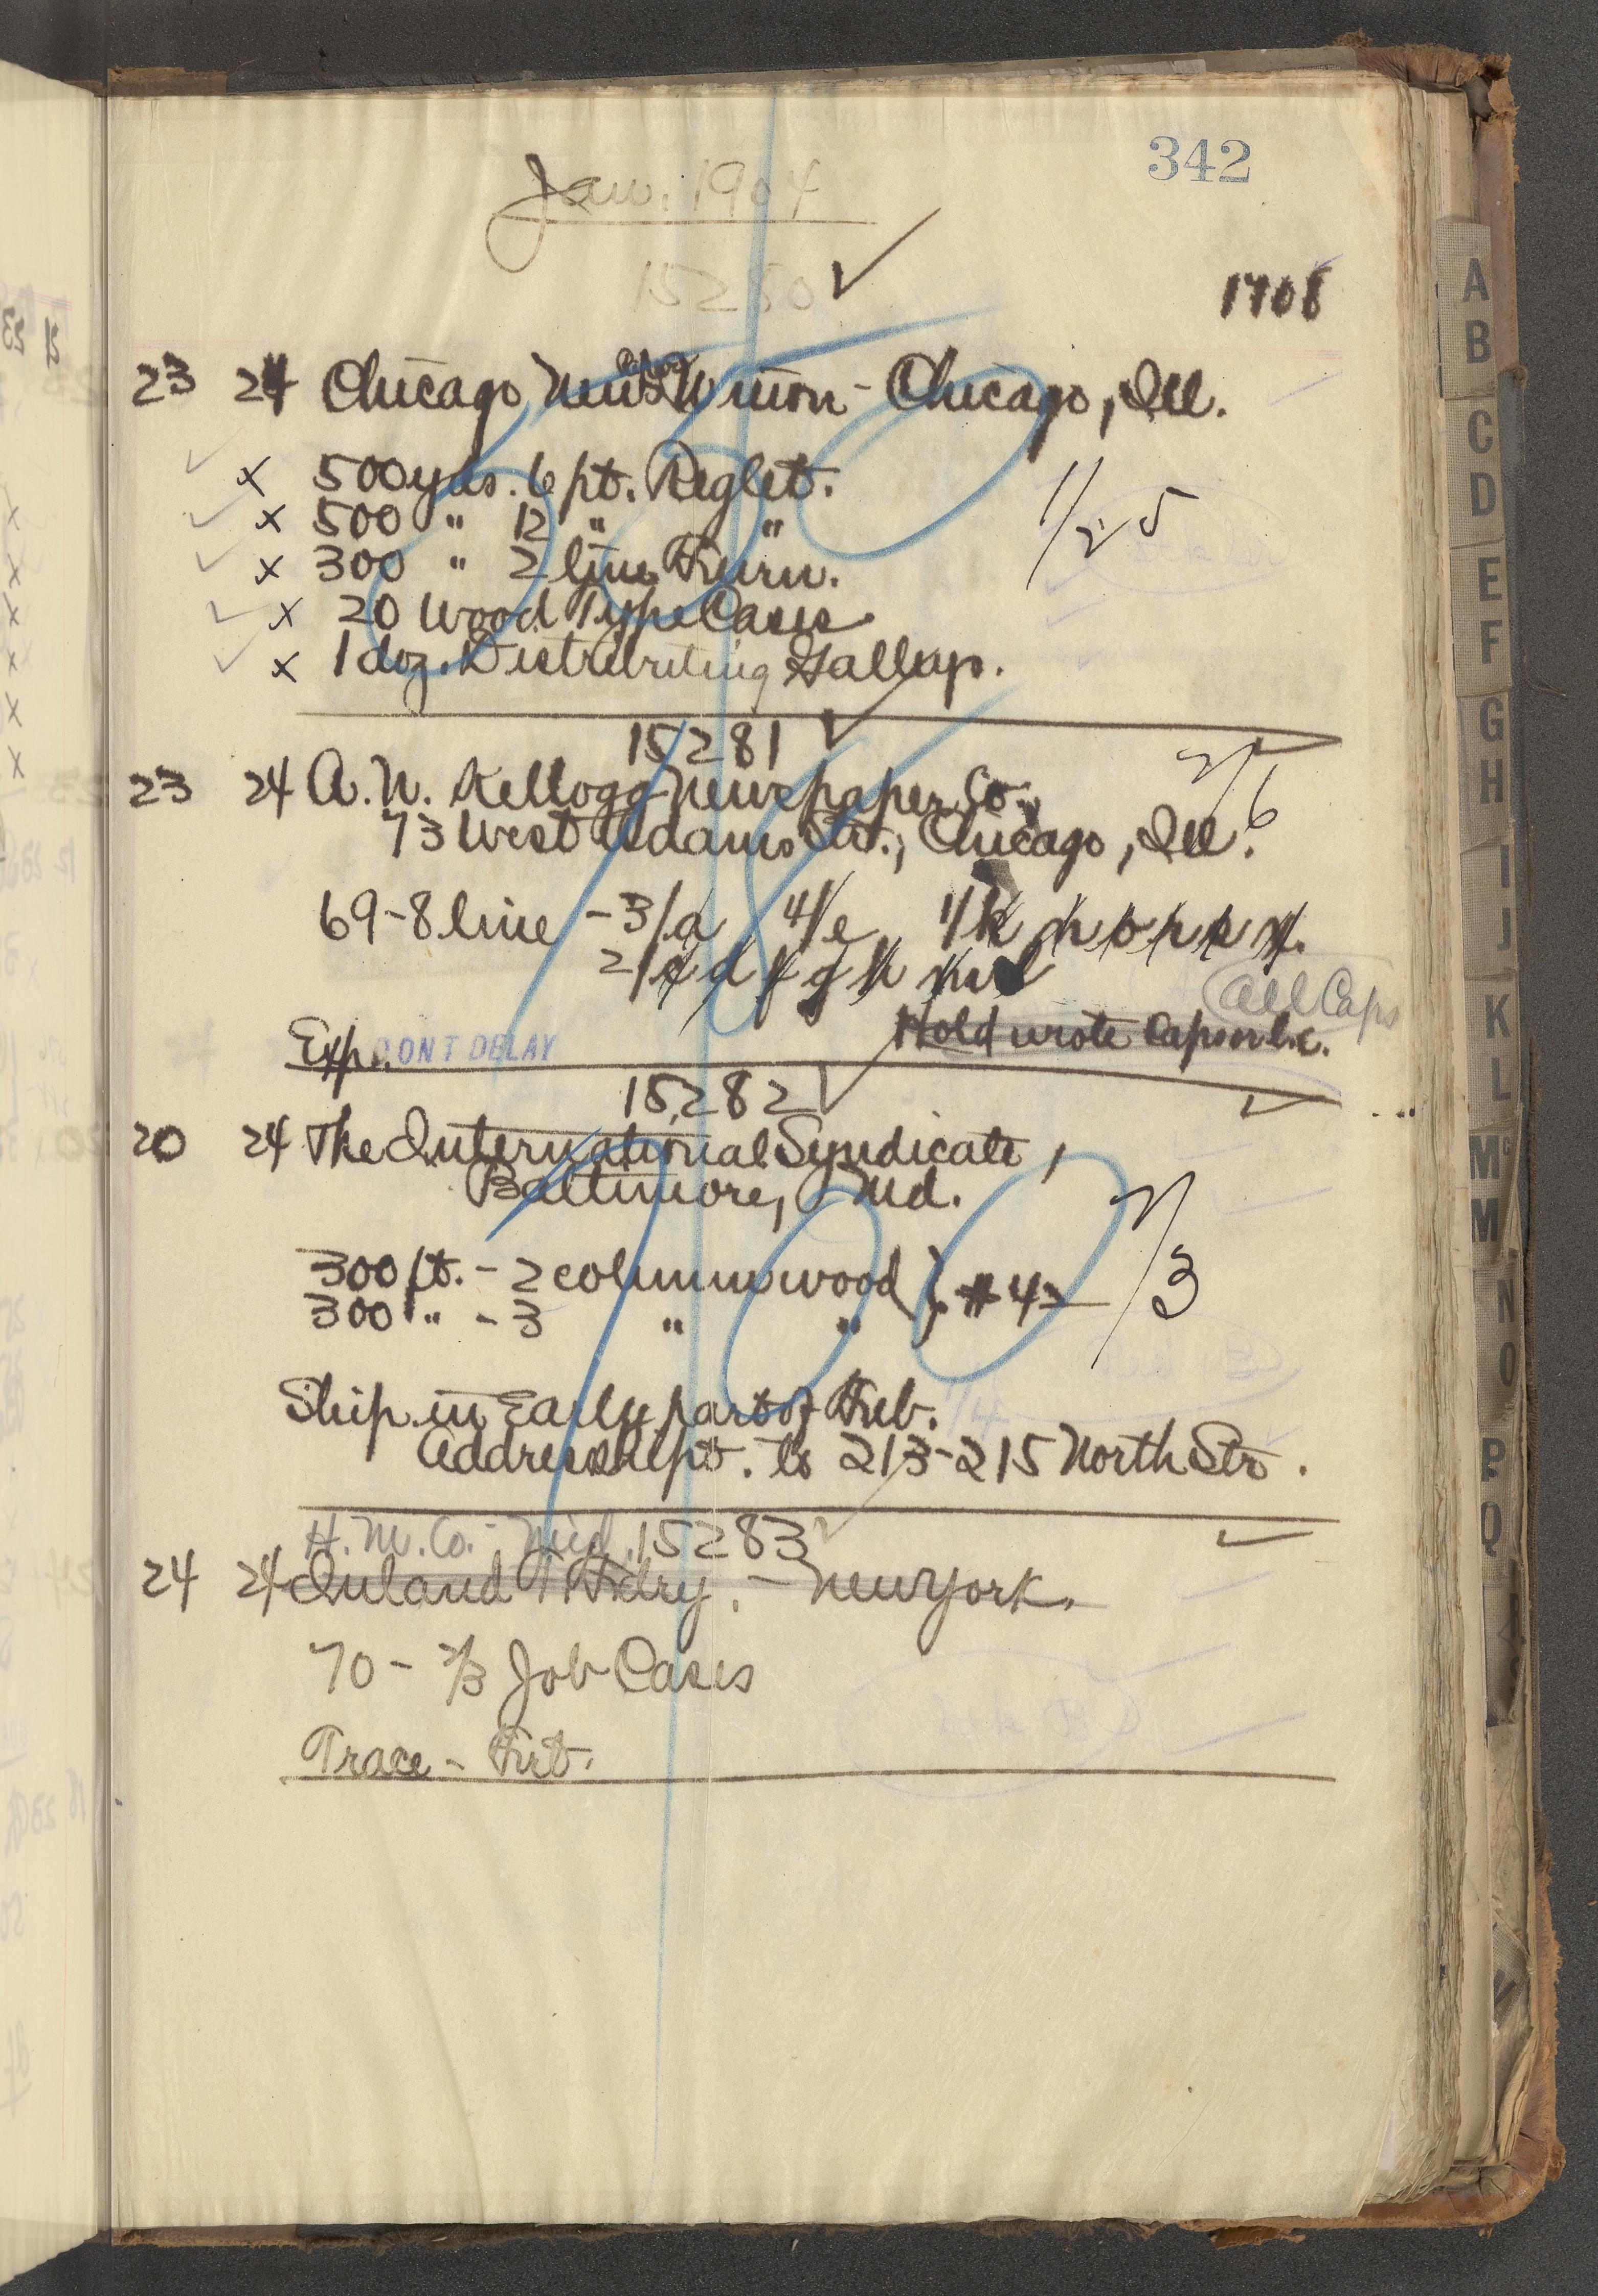 342
Jan. 1904
15280 ✓
1708
23 24 Chicago Newspaper Union - Chicago, Ill.
x 500 yds. 6 pt. Reglet.
x 500 " 12 " "
x 300 " 2 line Furn.
x 20 Wood Type Cases
x 1 doz. Distributing Galleys.
1/25
15281 ✓
23 24 A. N. Kellogg Newspaper Co.,
73 West Adams St., Chicago, Ill.
2/6
69-8 line - 3/a 4/e 1/k n o p r
2/c d f g h
All Caps
Hold wrote Caps or l.c.
Exp. DON'T DELAY
15282 ✓
20 24 The International Syndicate,
Baltimore, Md.
300 ft. - 2 column wood } #42
300 " - 3 " "
2/3
Ship in Early part of Feb.
Address shipt. to 213-215 North Str.
H. M. Co. - 15283
24 24 Inland T. Fdry. - New York.
70 - 2/3 Job Cases
Trace - Frt.
A
B
C
D
E
F
G
H
I
J
K
L
Mc
M
N
O
P
Q